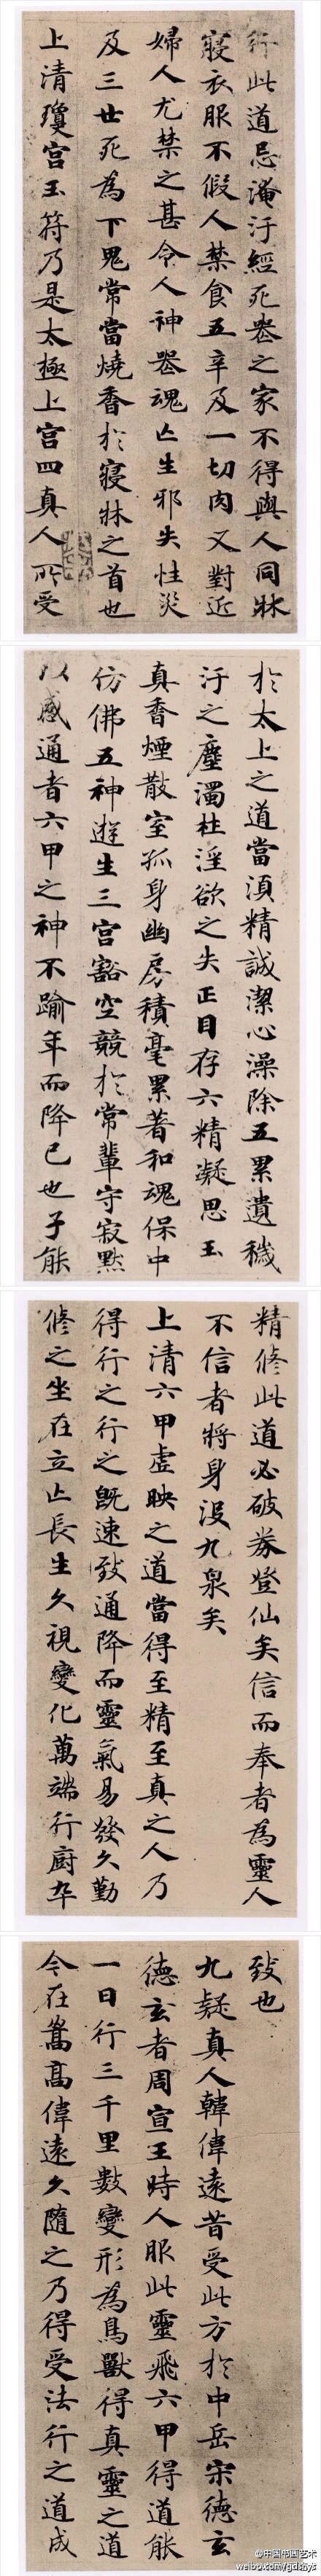 行此道忌淹汙經死喪之家不得與人同牀
寢衣服不假人禁食五辛及一切肉又對近
婦人尤禁之甚令人神喪魂亡生邪失性災
及三世死為下鬼常當燒香於寢牀之首也
上清瓊宮玉符乃是太極上宮四真人所受
於太上之道當須精誠潔心澡除五累遺穢
汙之塵濁杜淫欲之失正目存六精凝思玉
真香煙散室孤身幽房積毫累著和魂保中
仿佛五神遊生三宮豁空競於常輩守寂默
以感通者六甲之神不踰年而降已也子能
精修此道必破券登仙矣信而奉者為靈人
不信者將身沒九泉矣
上清六甲虛映之道當得至精至真之人乃
得行之行之既速致通降而靈氣易發久勤
修之坐在立亡長生久視變化萬端行廚卒
致也
九疑真人韓偉遠昔受此方於中岳宋德玄
德玄者周宣王時人服此靈飛六甲得道能
一日行三千里數變形為鳥獸得真靈之道
今在嵩高偉遠久隨之乃得受法行之道成
@中国书画艺术
weibo.com/gdszys